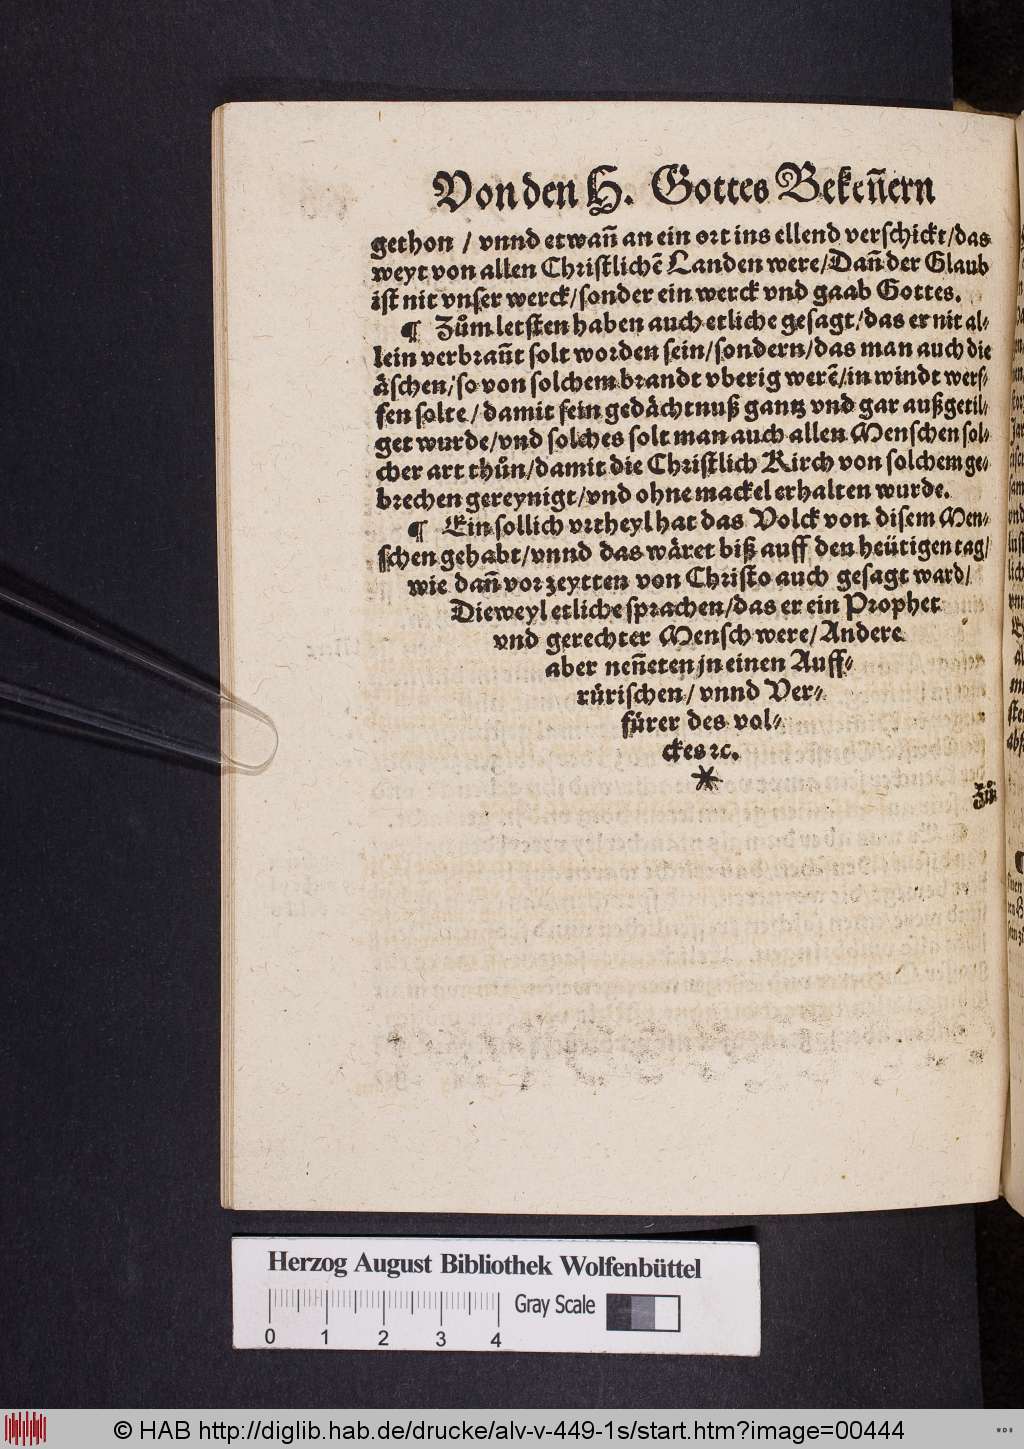 Von den H. Gottes Bekeñern
gethon / vnnd etwañ an ein ort ins ellend verschickt / das
weyt von allen Christlichē Landen were / Dañ der Glaub
ist nit vnser werck / sonder ein werck vnd gaab Gottes.
¶ Zům letsten haben auch etliche gesagt / das er nit al⸗
lein verbrañt solt worden sein / sondern / das man auch die
äschen / so von solchem brandt vberig werē / in windt werf⸗
fen solte / damit sein gedächtnuß gantz vnd gar außgetil⸗
get wurde / vnd solches solt man auch allen Menschen sol⸗
cher art thůn / damit die Christlich Kirch von solchem ge⸗
brechen gereynigt / vnd ohne mackel erhalten wurde.
¶ Ein sollich vrtheyl hat das Volck von disem Men⸗
schen gehabt / vnnd das wäret biß auff den heütigen tag /
wie dañ vor zeytten von Christo auch gesagt ward /
Dieweyl etliche sprachen / das er ein Prophet
vnd gerechter Mensch were / Andere
aber neñeten jn einen Auff⸗
rürischen / vnnd Ver⸗
fürer des vol⸗
ckes ꝛc.
*
Zům
Herzog August Bibliothek Wolfenbüttel
Gray Scale
0 1 2 3 4
© HAB http://diglib.hab.de/drucke/alv-v-449-1s/start.htm?image=00444